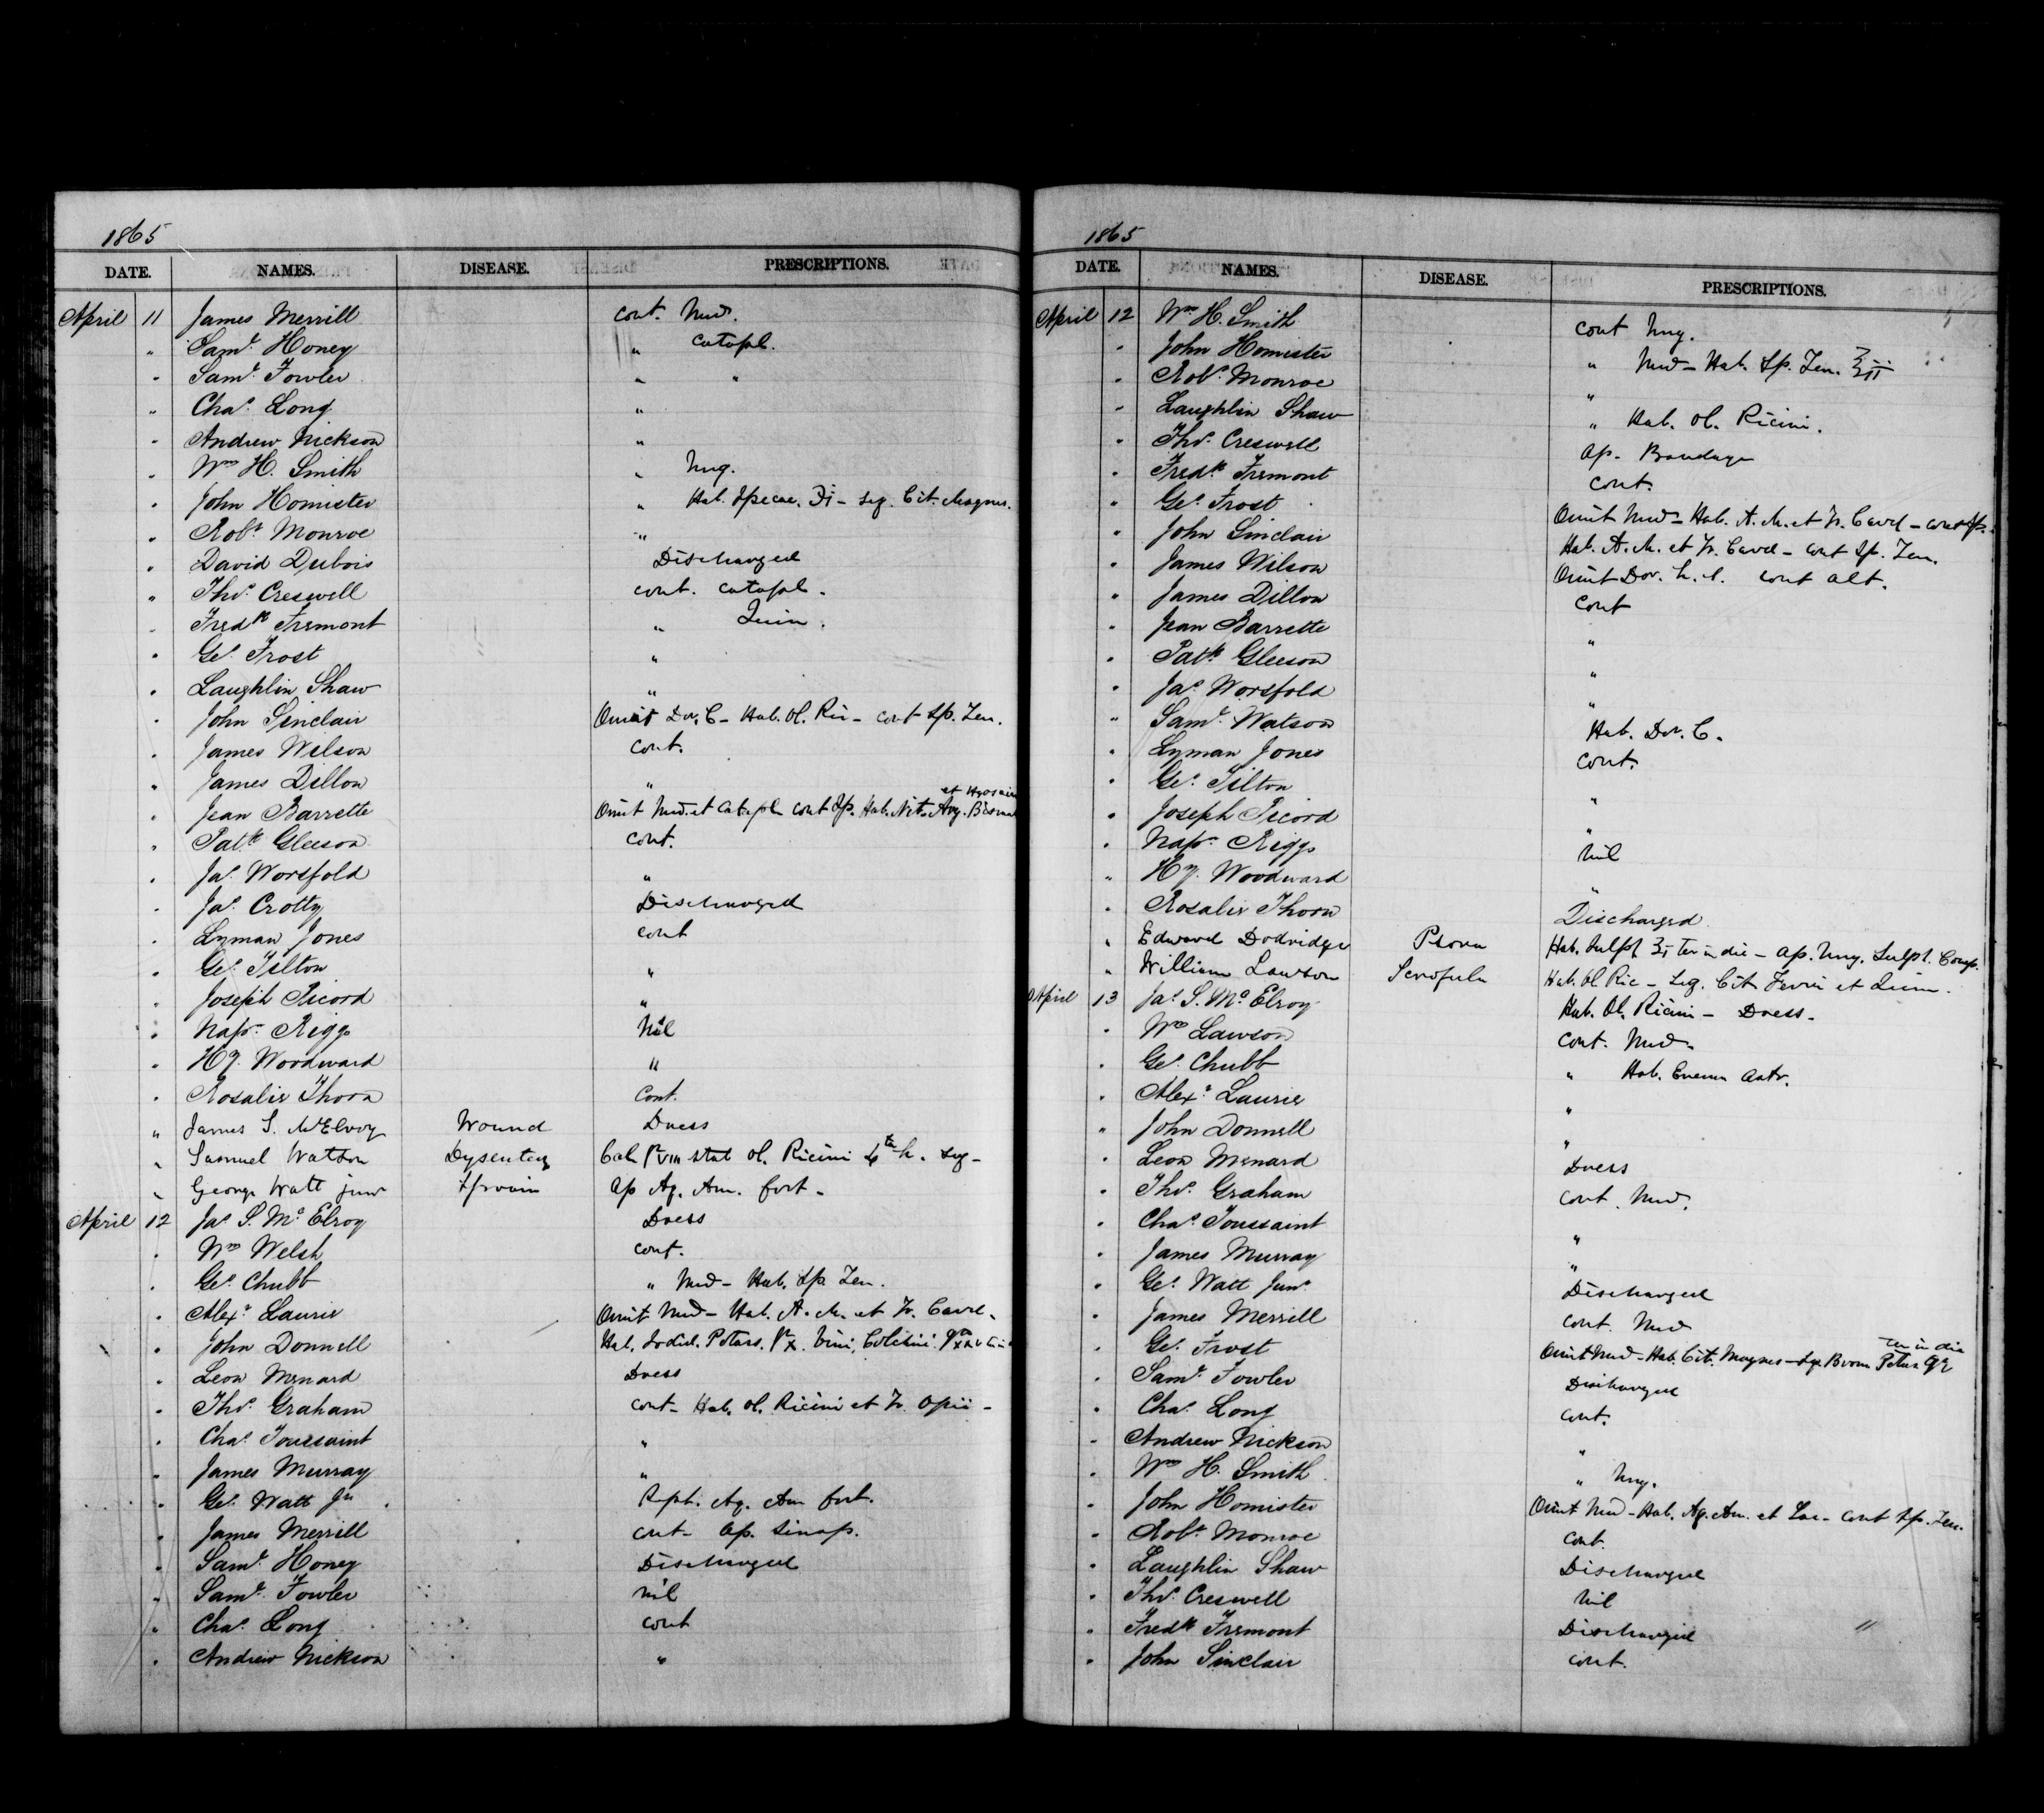 1865
DATE. NAMES. DISEASE. PRESCRIPTIONS.
April 11 James Merrill cont. Med.
" Saml. Honey " Catapl.
" Saml. Fowler " "
" Chas. Long "
" Andrew Nickson "
" Wm H. Smith " Ung.
" John Homister " Hab. Ipecac. ℈i - seq. Cit. Magnes.
" Robt. Monroe "
" David Dubois Discharged
" Thos. Creswell cont. Catapl.
" Fredk Fremont " Quin.
" Geo. Frost "
" Laughlin Shaw "
" John Sinclair Omit Dov. C - Hab. Ol. Ric - cont Sp. Ten.
" James Wilson cont.
" James Dillon "
" Jean Barrette Omit Med. et Catapl. cont Sp. Hab. Nit. Arg. Bismu et Hyosci
" Patk Gleeson cont.
" Jas. Worsfold "
" Jas. Crotty Discharged
" Lyman Jones cont
" Geo. Tilton "
" Joseph Picord "
" Napn. Riggs Nil
" Hy. Woodward "
" Rosalie Thorn cont.
" James S. McElroy Wound Dress
" Samuel Watson Dysentery Cal. gr VIII stat Ol. Ricini 4ta h. seq -
" George Watt junr Sprain Ap Aq. Am. fort -
April 12 Jas. S. McElroy Dress
" Wm Welsh cont.
" Geo. Chubb " Med - Hab. Sp. Ten.
" Alexr. Laurie Omit Med - Hab. A. M. et Tr. Card -
" John Donnell Hab. Iodid. Potass. gr x. Vini Colchici
" Leon Menard Dress
" Thos. Graham cont - Hab. Ol. Ricini et Tr. Opii -
" Chas. Toussaint "
" James Murray "
" Geo. Watt Jr. Rept. Aq. Am fort.
" James Merrill cont - Ap. Sinap.
" Saml. Honey Discharged
" Saml. Fowler Nil
" Chas. Long cont
" Andrew Nickson "
1865
DATE. NAMES. DISEASE. PRESCRIPTIONS.
April 12 Wm H. Smith cont Ung.
" John Homister " Med - Hab. Sp. Ten. ʒii
" Robt. Monroe "
" Laughlin Shaw " Hab. Ol. Ricini.
" Thos. Creswell Ap. Bandage
" Fredk Fremont cont.
" Geo. Frost Omit Med - Hab. A. M. et Tr. Card - cont Sp.
" John Sinclair Hab. A. M. et Tr. Card - cont Sp. Ten.
" James Wilson Omit Dov. h. s. cont alt.
" James Dillon cont
" Jean Barrette "
" Patk Gleeson "
" Jas. Worsfold "
" Saml. Watson Hab. Dov. C.
" Lyman Jones cont.
" Geo. Tilton "
" Joseph Picord "
" Napn. Riggs Nil
" Hy. Woodward "
" Rosalie Thorn Discharged
" Edward Dodridge Psora Hab. Sulph ʒi ter in die - Ap. Ung. Sulph. Comp.
" William Lawson Scrofula Hab. Ol Ric - seq. Cit Ferri et Quin.
April 13 Jas. S. McElroy Hab. Ol. Ricini - Dress -
" Wm Lawson cont. Med -
" Geo. Chubb " Hab. Enema
" Alexr. Laurie "
" John Donnell "
" Leon Menard Dress
" Thos. Graham cont. Med.
" Chas. Toussaint "
" James Murray "
" Geo. Watt Junr. Discharged
" James Merrill cont. Med
" Geo. Frost Omit Med - Hab. Cit. Magnes - seq. Brom Potass gr v ter in die
" Saml. Fowler Discharged
" Chas. Long cont.
" Andrew Nickson "
" Wm H. Smith " Ung.
" John Homister Omit Med - Hab. Aq. Am. et Lac - cont Sp. Ten.
" Robt. Monroe cont.
" Laughlin Shaw Discharged
" Thos. Creswell Nil
" Fredk Fremont Discharged "
" John Sinclair cont.